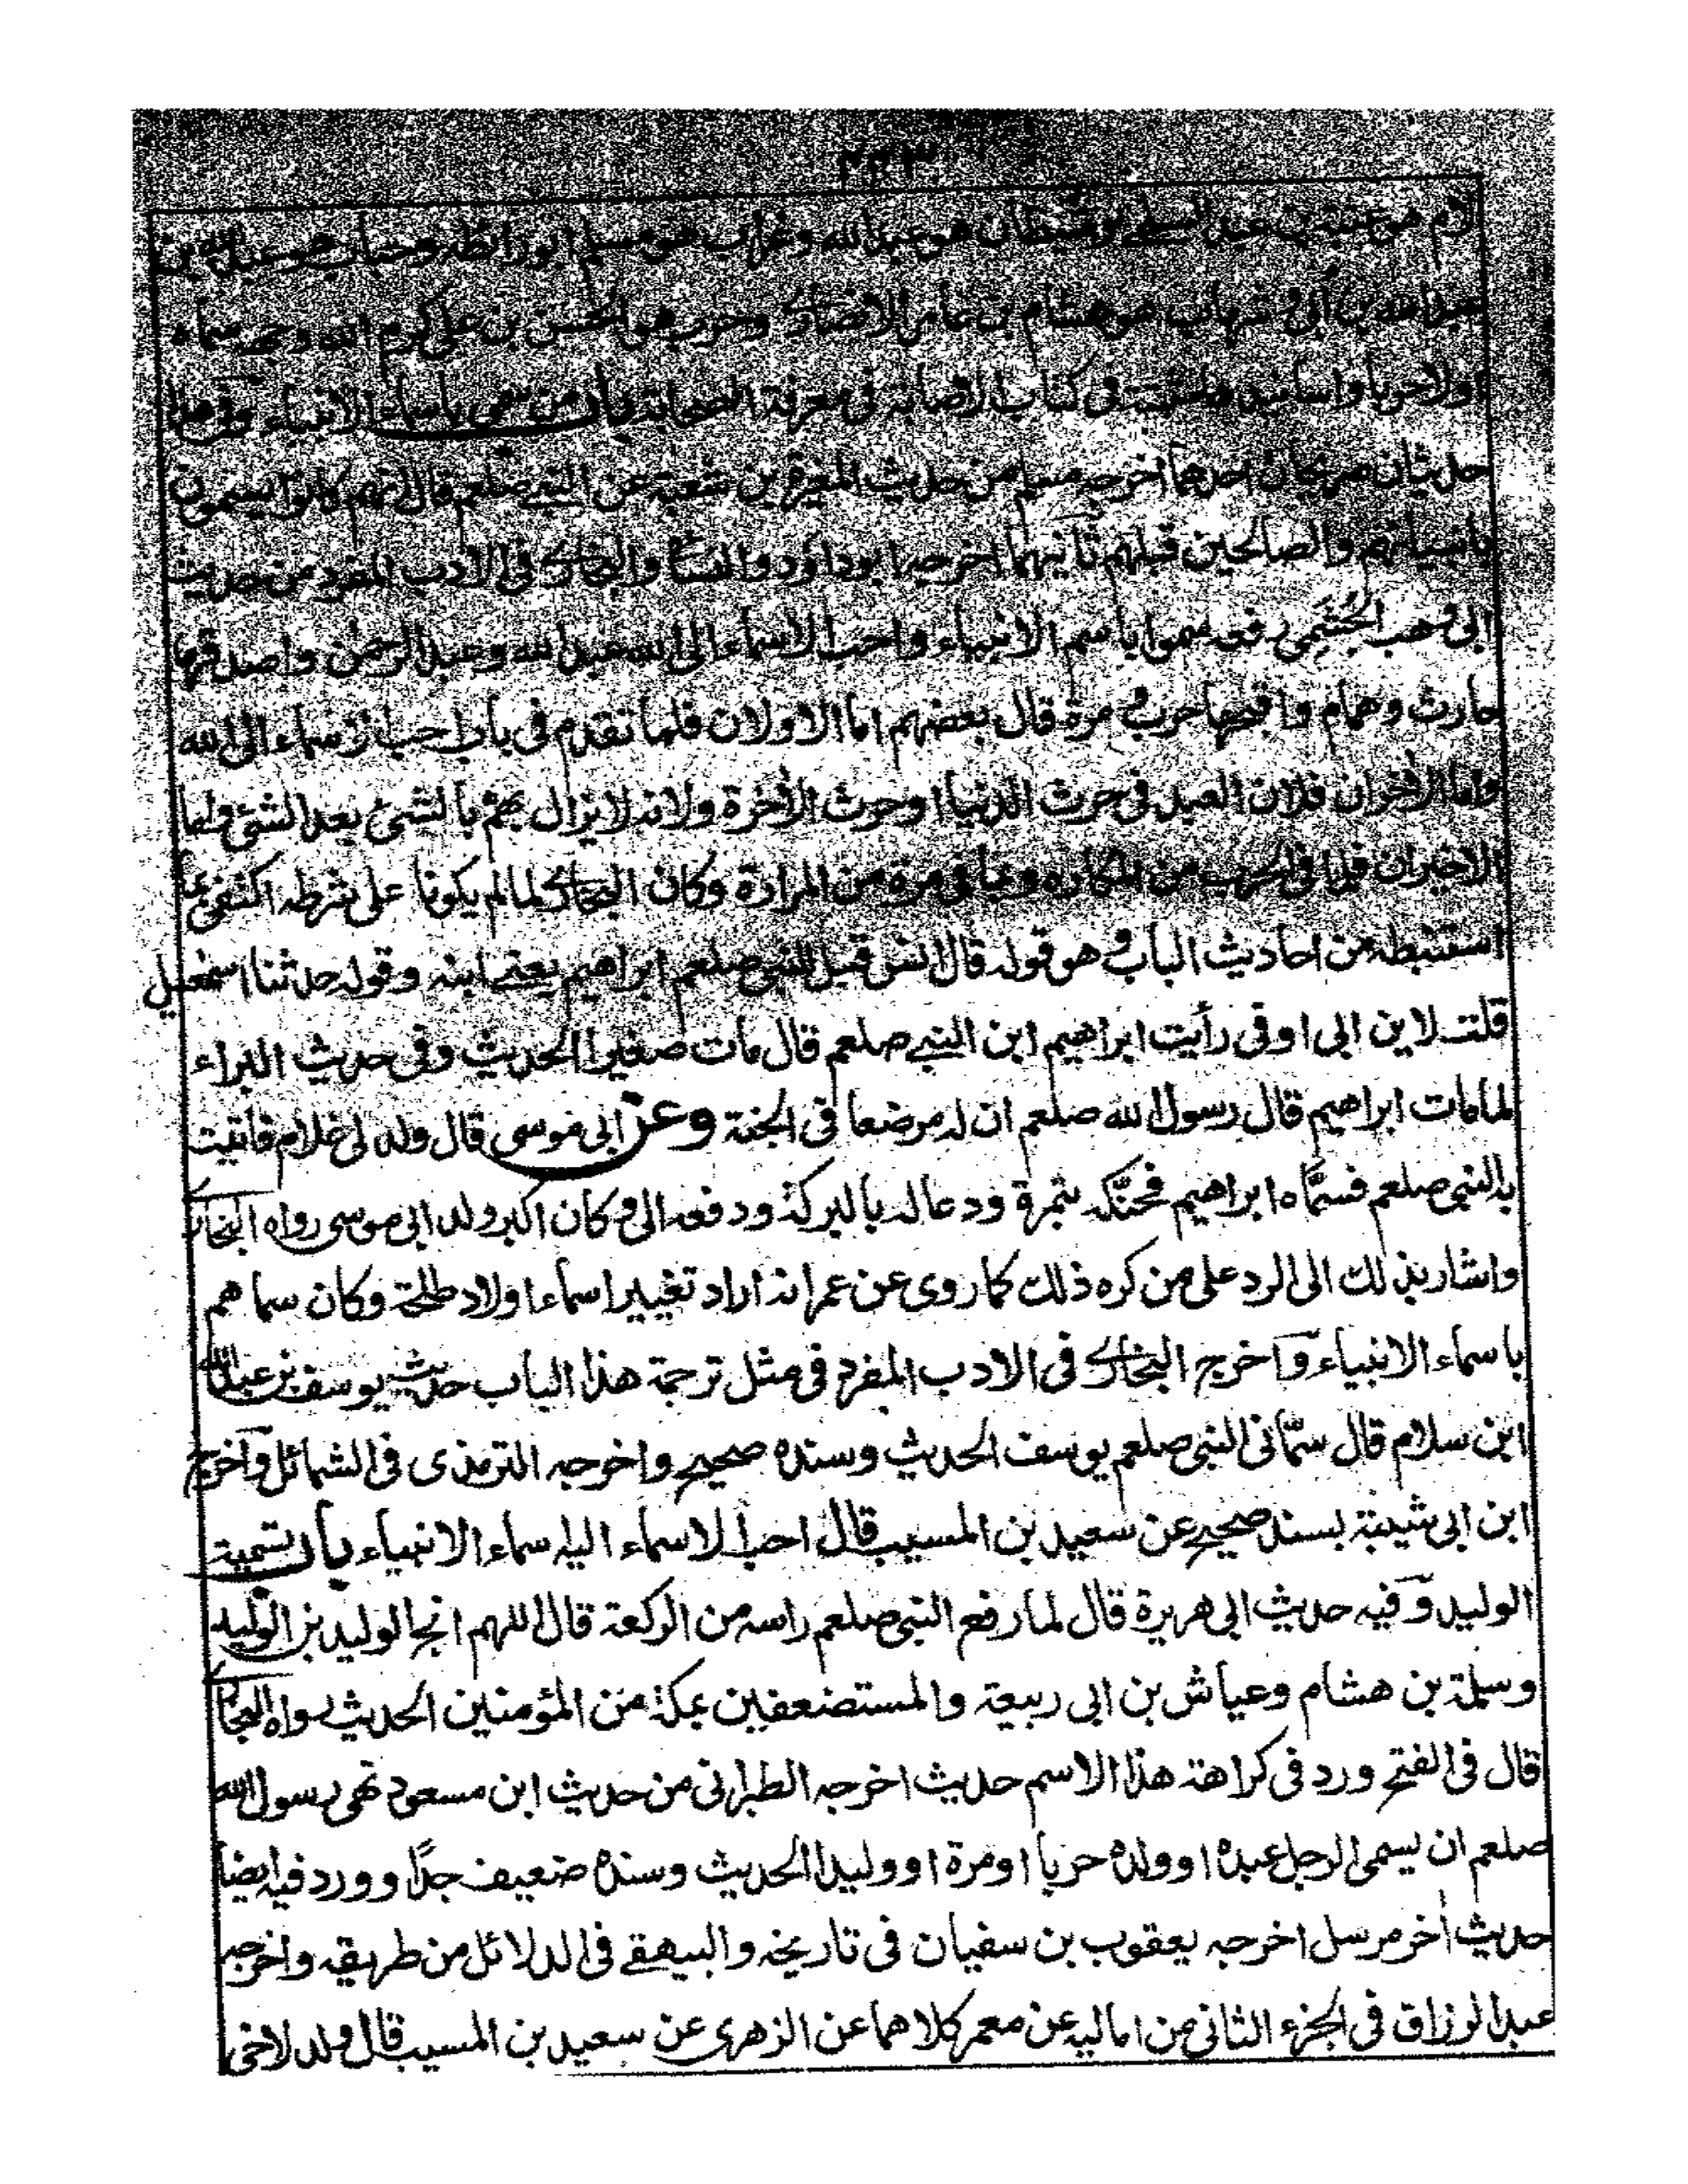 لام هو عتبة بن عبد السلمى وشيطان هو عبد الله وغراب هو مسلم ابو رائطة وحباب هو عبد الله بن
عبد الله بن أبى وشهاب هو هشام بن عامر الانصارى وحرب هو الحسن بن على كرم الله وجهه سماه
اولا حربا واسانيد فى كتاب الاصابة فى معرفة الصحابة باب من سمى باسماء الانبياء وفى هذا
حديثان صريحان احدهما اخرجه مسلم من حديث المغيرة بن شعبة عن النبى صلعم قال انهم كانوا يسمون
بأنبيائهم والصالحين قبلهم ثانيهما اخرجه ابو داؤد والنسائى والبخارى فى الادب المفرد من حديث
ابى وهب الجشمى رفعه سموا باسم الانبياء واحب الاسماء الى الله عبد الله وعبد الرحمن واصدقها
حارث وهمام واقبحها حرب ومرة قال بعضهم اما الاولان فلما تقدم فى باب احب الاسماء الى الله
واما الأخران فلان العبد فى حرث الدنيا او حرث الأخرة ولانه لا يزال يهم بالشئ بعد الشئ واما
الاخيران فلما فى الحرب من المكاره ولما فى مرة من المرارة وكان البخارى لما لم يكونا على شرطه اكتفى بما
استنبطه من احاديث الباب وهو قوله قال انس قبل النبى صلعم ابراهيم يعنى ابنه وقوله حدثنا اسمعيل
قلت لابن ابى اوفى رأيت ابراهيم ابن النبى صلعم قال مات صغيرا الحديث وفى حديث البراء
لما مات ابراهيم قال رسول الله صلعم ان له مرضعا فى الجنة وعن ابى موسى قال ولد لى غلام فأتيت
به النبى صلعم فسمَّاه ابراهيم فحنَّكه بتمرة ودعا له بالبركة ودفعه الى وكان اكبر ولد ابى موسى رواه البخارى
واشار بذلك الى الرد على من كره ذلك كما روى عن عمر انه اراد تغيير اسماء اولاد طلحة وكان سماهم
باسماء الانبياء وآخرج البخارى فى الادب المفرد فى مثل ترجمة هذا الباب حديث يوسف بن عبد الله
ابن سلام قال سمّانى النبى صلعم يوسف الحديث وسنده صحيح واخرجه الترمذى فى الشمائل وآخرج
ابن ابى شيبة بسند صحيح عن سعيد بن المسيب قال احب الاسماء اليه اسماء الانبياء باب تسمية
الوليد وفيه حديث ابى هريرة قال لما رفع النبى صلعم راسه من الركعة قال اللهم انج الوليد بن الوليد
وسلمة بن هشام وعياش بن ابى ربيعة والمستضعفين بمكة من المؤمنين الحديث رواه البخارى
قال فى الفتح ورد فى كراهة هذا الاسم حديث اخرجه الطبرانى من حديث ابن مسعود نهى رسول الله
صلعم ان يسمى الرجل عبده او ولده حربا او مرة او وليدا الحديث وسنده ضعيف جدًا وورد فيه ايضا
حديث أخر مرسل اخرجه يعقوب بن سفيان فى تاريخه والبيهقى فى الدلائل من طريقه واخرجه
عبد الرزاق فى الجزء الثانى من اماليه عن معمر كلاهما عن الزهرى عن سعيد بن المسيب قال ولد لاخى